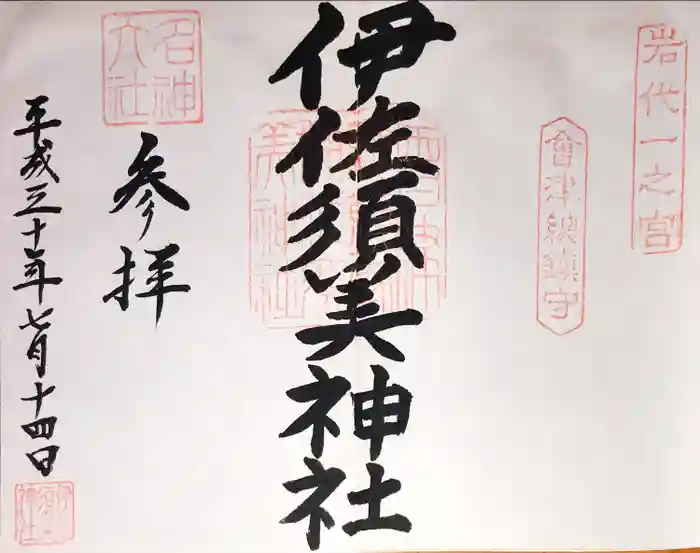 岩代一之宮
會津総鎮守
伊佐須美神社
名神大社
参拝
平成三十年七月十四日